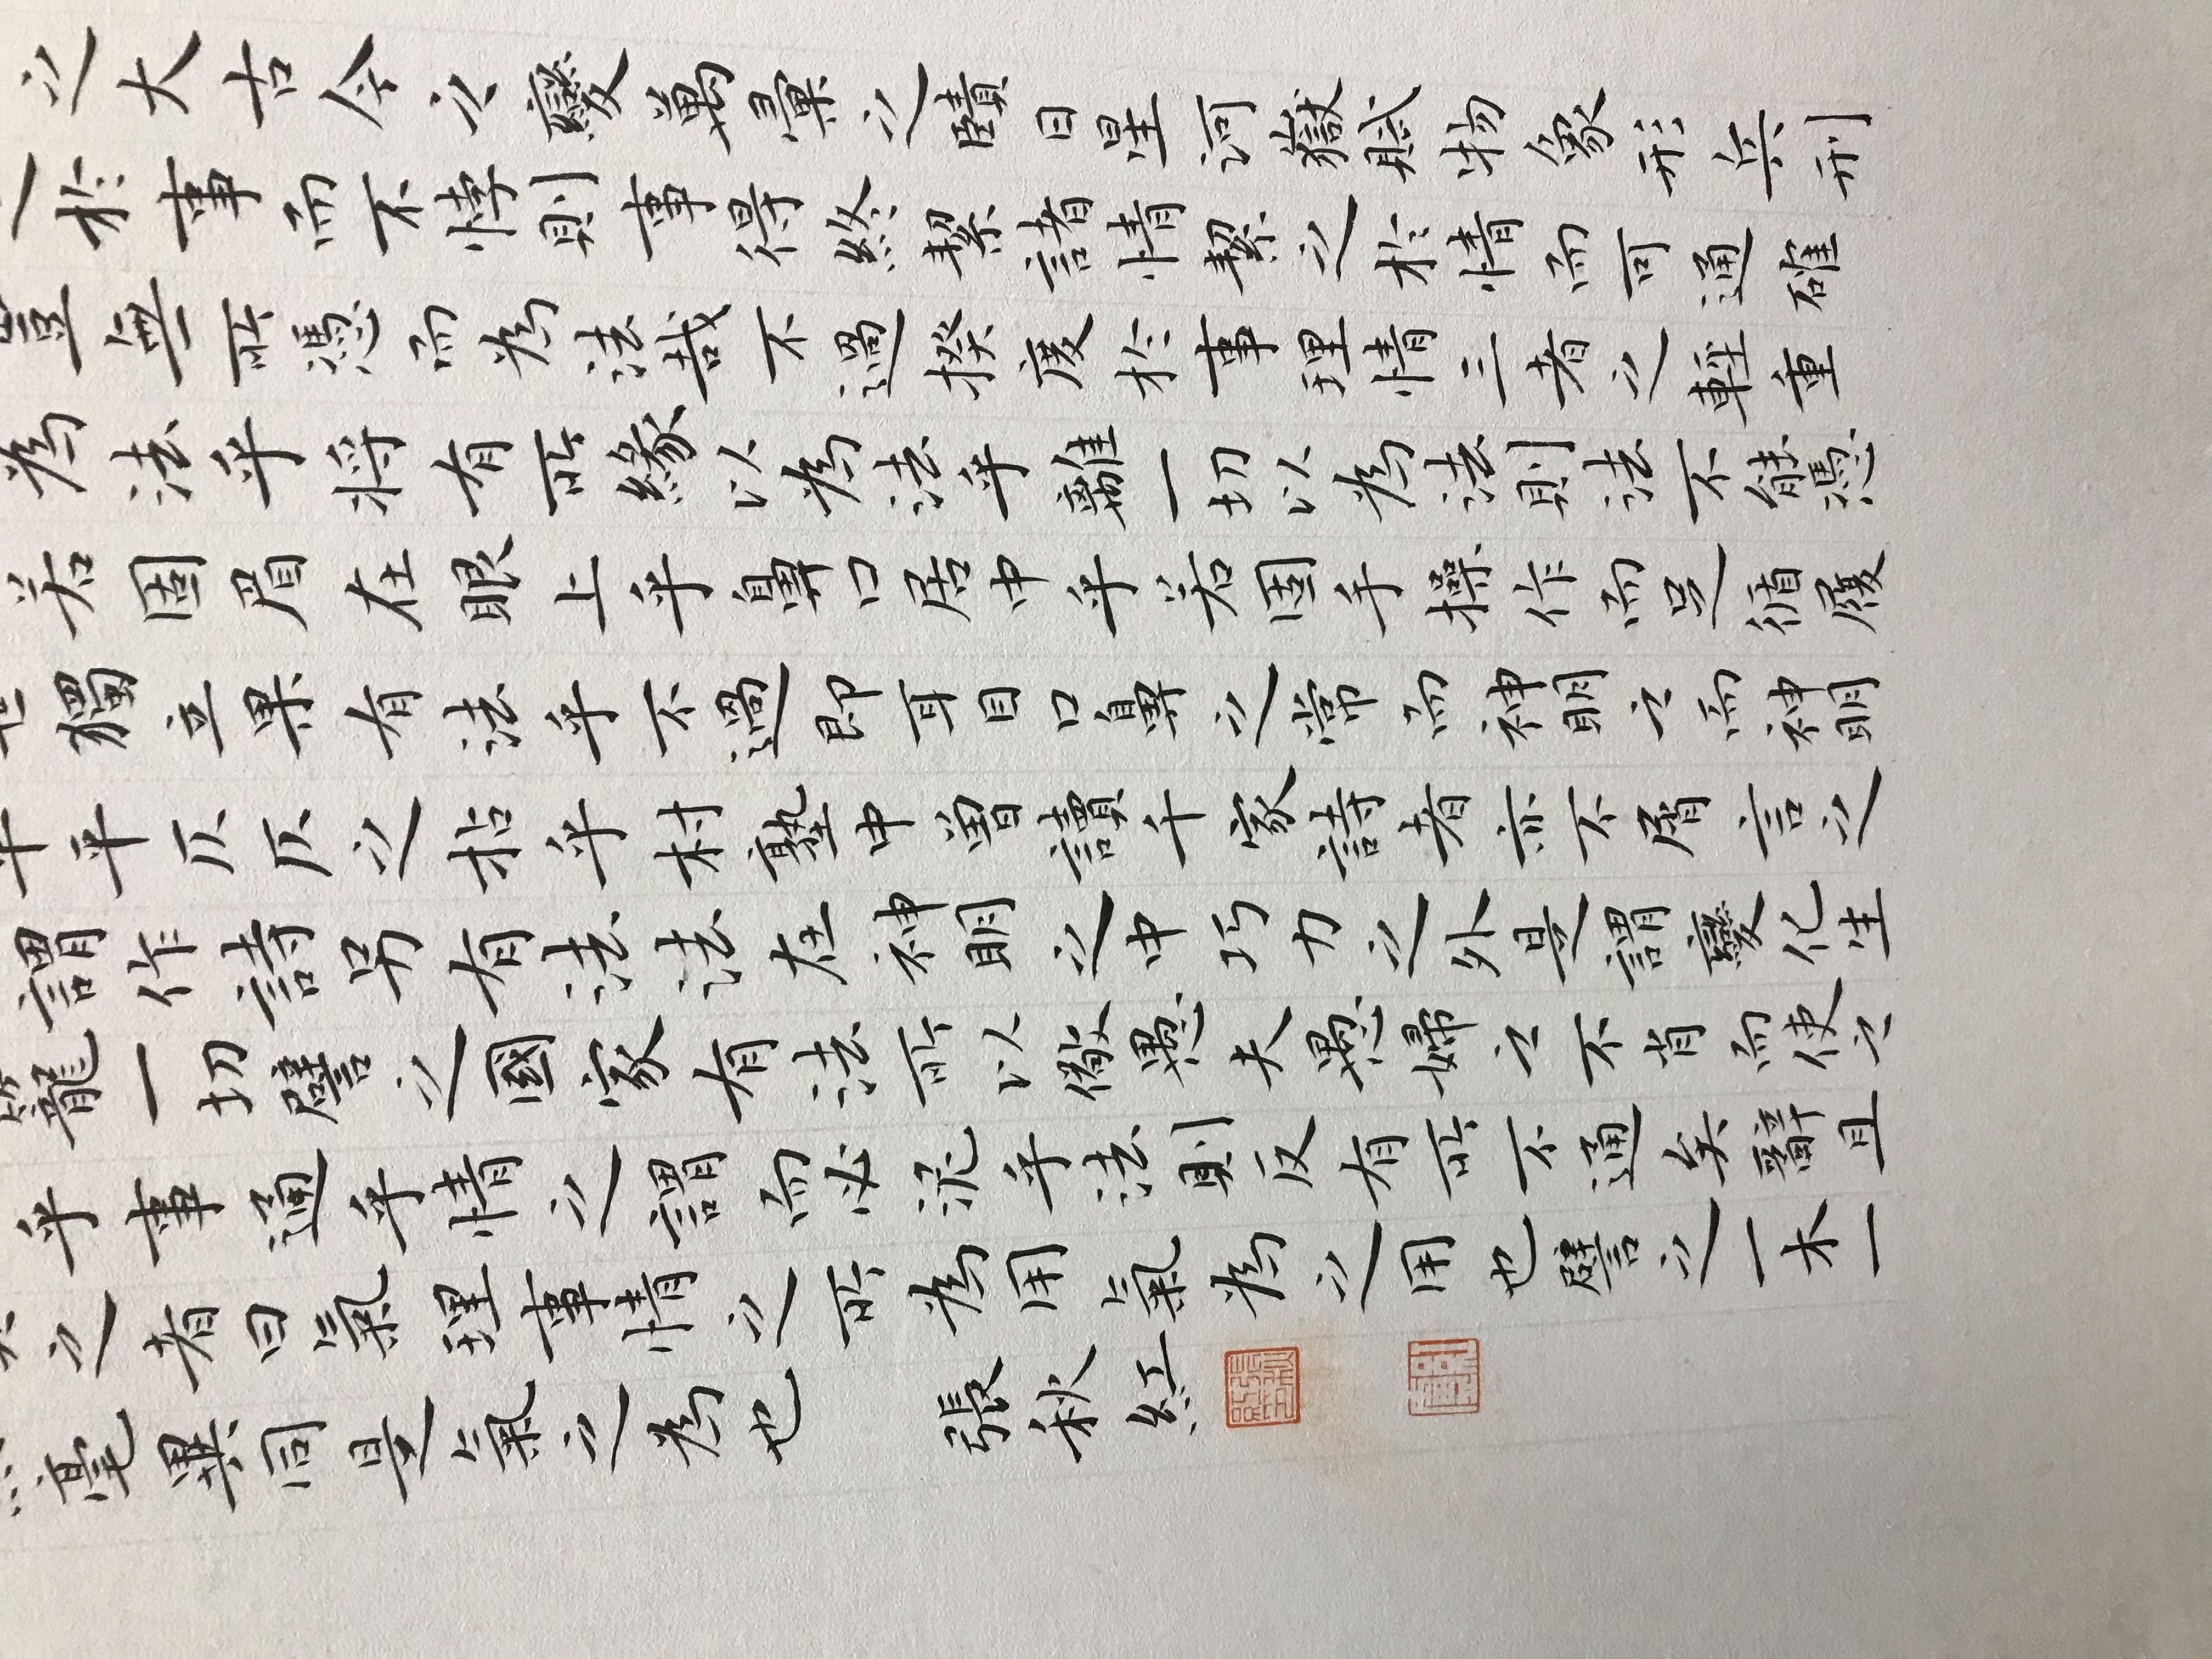 之大古今之變萬彙之賾日星河嶽賦物象形兵刑
之於事而不悖則事得終絜諸情絜之於情而可通確
豈無所憑而為法哉不過揆度於事理情三者之輕重
為法乎将有所緣以為法乎離一切以為法則法不能憑
若固眉在眼上乎鼻口居中乎若固手操作而足循履
世獨立果有法乎不過即耳目口鼻之常而神明之而神明
平平仄仄之拈乎村塾中曽讀千家詩者亦不屑言之
謂作詩另有法法在神明之中巧力之外是謂變化生
籠一切譬之國家有法所以儆愚夫愚婦之不肖而使之
乎事通乎情之謂而必泥乎法則反有所不通矣辭且
之者曰氣理事情之所為用氣為之用也譬之一木一
毫異同是氣之為也
張秋紅
張秋紅印